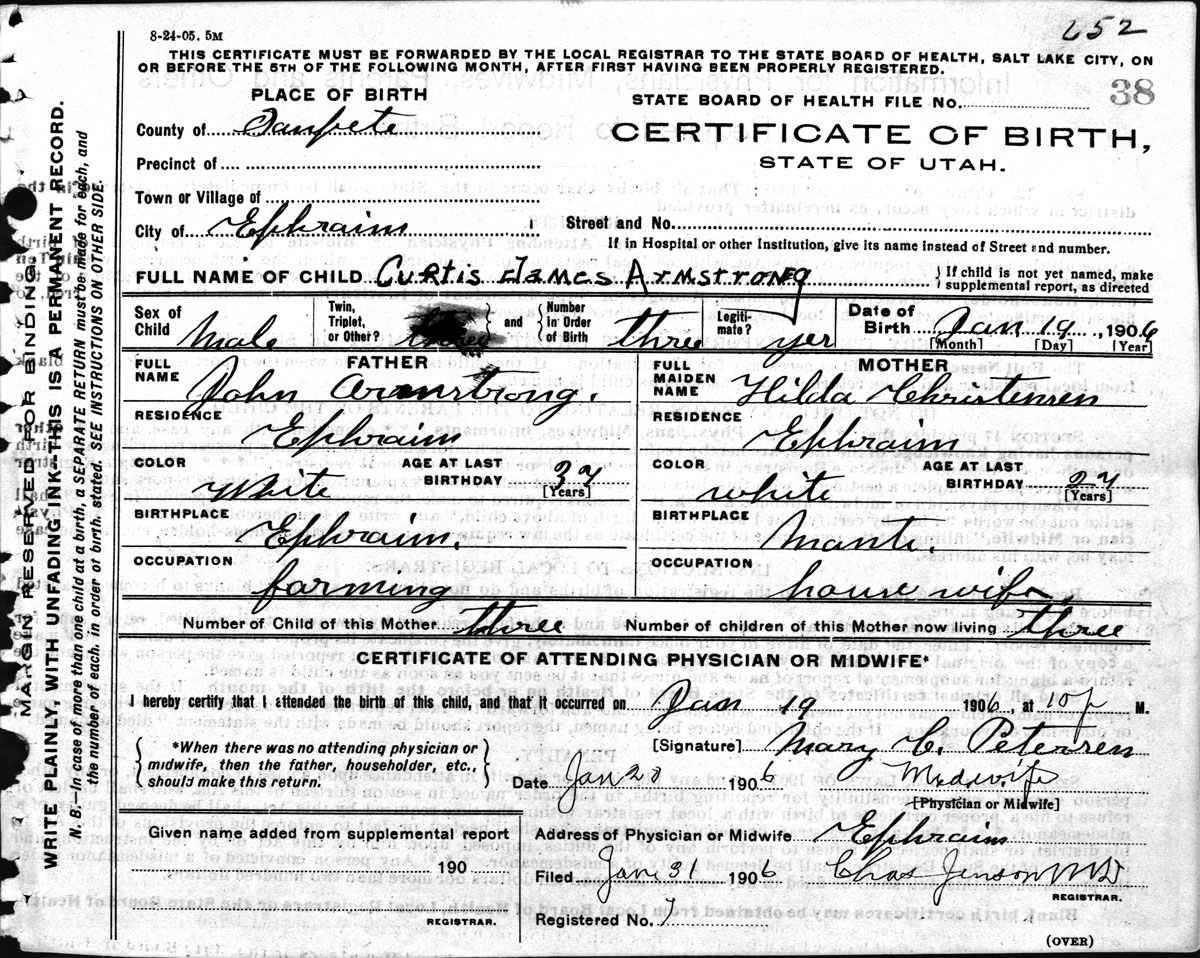 652
8-24-05. 5M
THIS CERTIFICATE MUST BE FORWARDED BY THE LOCAL REGISTRAR TO THE STATE BOARD OF HEALTH, SALT LAKE CITY, ON
OR BEFORE THE 5TH OF THE FOLLOWING MONTH, AFTER FIRST HAVING BEEN PROPERLY REGISTERED.
PLACE OF BIRTH
STATE BOARD OF HEALTH FILE NO. 38
County of Sanpete
CERTIFICATE OF BIRTH,
STATE OF UTAH.
Precinct of
Town or Village of
City of Ephraim Street and No.
If in Hospital or other Institution, give its name instead of Street and number.
FULL NAME OF CHILD Curtis James Armstrong { If child is not yet named, make supplemental report, as directed
Sex of Child Male Twin, Triplet, or Other? and { Number in Order of Birth three Legiti- mate? yes Date of Birth Jan 19, 1906
[Month] [Day] [Year]
FULL NAME FATHER John Armstrong.
FULL MAIDEN NAME MOTHER Hilda Christensen
RESIDENCE Ephraim
RESIDENCE Ephraim
COLOR White AGE AT LAST BIRTHDAY [Years]
COLOR white AGE AT LAST BIRTHDAY [Years]
BIRTHPLACE Ephraim.
BIRTHPLACE Manti.
OCCUPATION farming
OCCUPATION house wife
Number of Child of this Mother three Number of children of this Mother now living three
CERTIFICATE OF ATTENDING PHYSICIAN OR MIDWIFE*
I hereby certify that I attended the birth of this child, and that it occurred on Jan 19 1906, at 10 p M.
{ *When there was no attending physician or midwife, then the father, householder, etc., should make this return. }
[Signature] Mary C. Petersen
Date Jan 1906 Midwife
[Physician or Midwife]
Given name added from supplemental report
190
REGISTRAR.
Address of Physician or Midwife Ephraim
Filed Jan 31 1906 Chas Jenson MD
REGISTRAR.
Registered No. 7
(OVER)
MARGIN RESERVED FOR BINDING.
WRITE PLAINLY, WITH UNFADING INK—THIS IS A PERMANENT RECORD.
N. B.—In case of more than one child at a birth, a SEPARATE RETURN must be made for each, and
the number of each, in order of birth, stated. SEE INSTRUCTIONS ON OTHER SIDE.